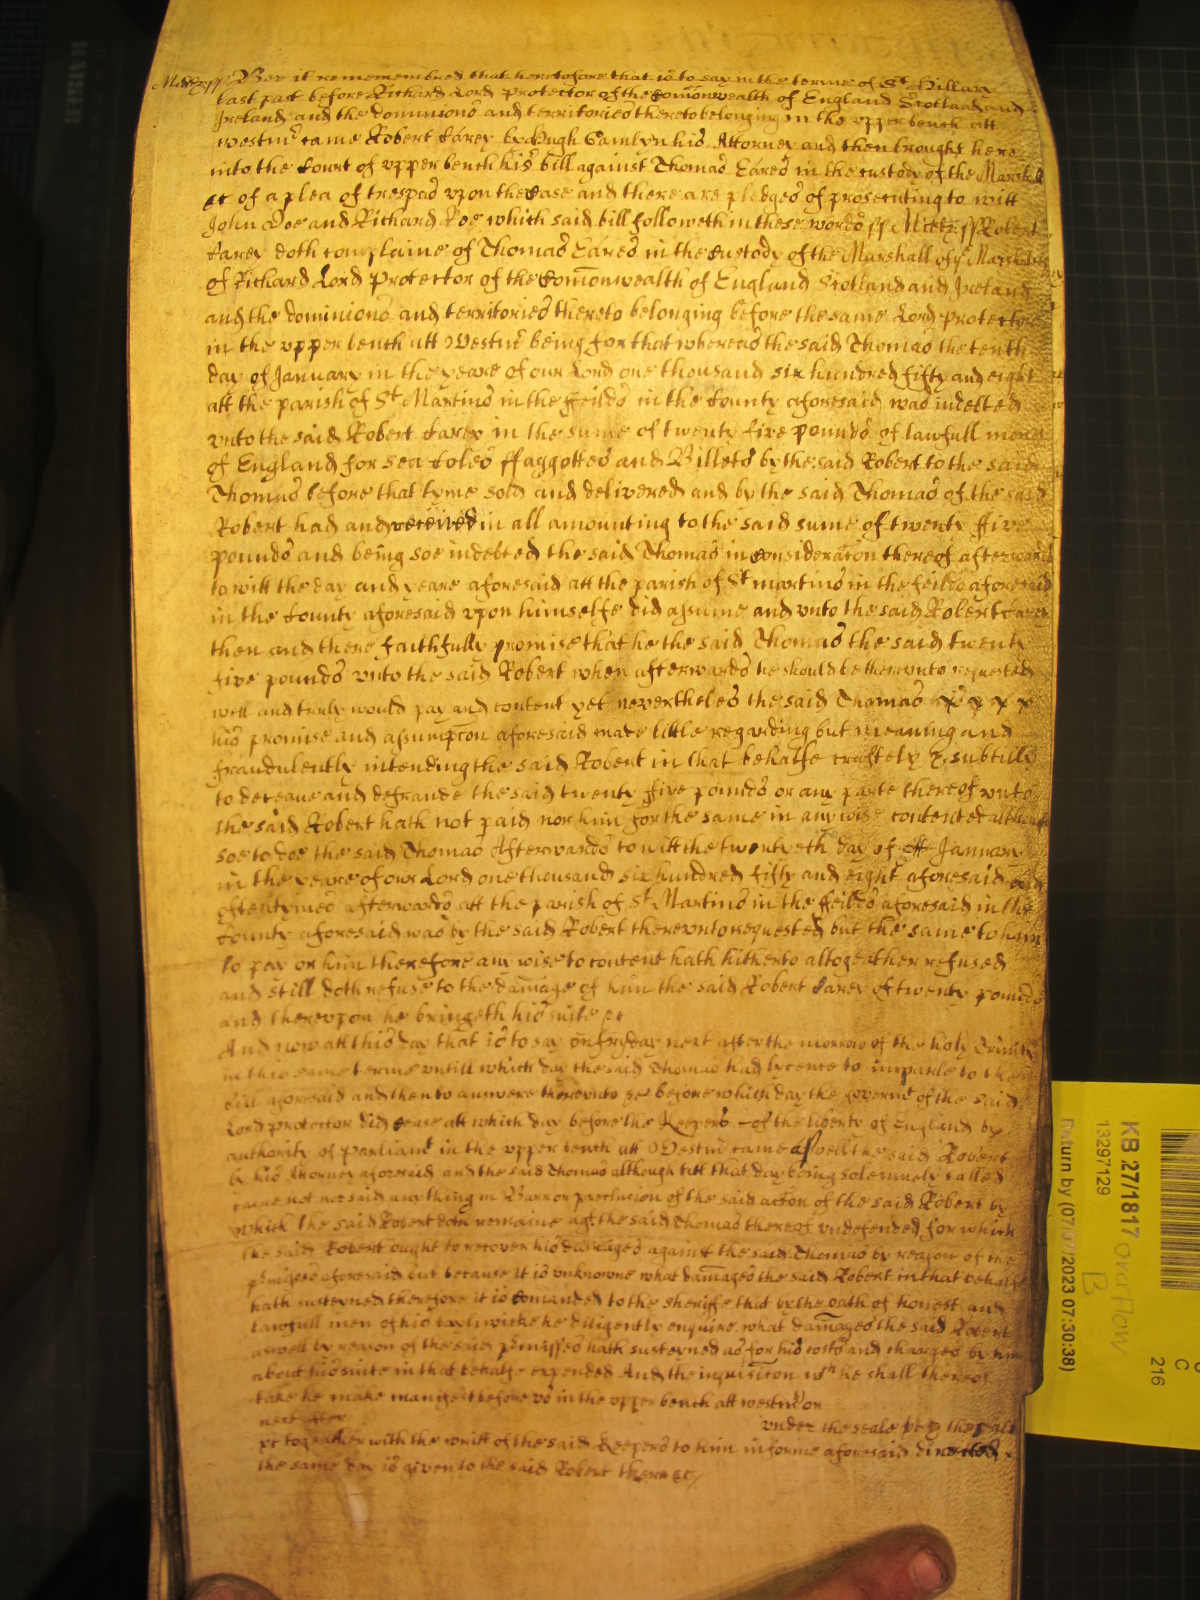 Middss Bee it rememembred that heretofore that is to say in the terme of St Hillary
last past before Richard Lord Protector of the Comonwealth of England Scotland and
Ireland and the dominions and territories thereto belonging in the vpper bench att
Westmr came Robert Carey by Hugh his Attorney and then brought here
into the Court of vpper bench his bill against Thomas Eares in the custody of the Marshall
&c of a plea of trespas vpon the Case and there are pledges of prosecuting to witt
John Doe and Richard Roe which said bill followeth in these words ss Middx ss Robert
Carey doth complaine of Thomas Eares in the Custody of the Marshall of ye Marshalsey
of Richard Lord Protector of the Comonwealth of England Scotland and Ireland
and the dominions and territories thereto belonging before the same Lord Protector
in the vpper bench att Westmr being for that whereas the said Thomas the tenth
day of January in the yeare of our Lord one thousand six hundred fifty and eight
att the parish of St Martins in the ffeilds in the County aforesaid was indebted
vnto the said Robert Carey in the sume of twenty five pounds of lawfull money
of England for sea Coles ffaggottes and Billets by the said Robert to the said
Thomas before that tyme sold and delivered and by the said Thomas of the said
Robert had and received in all amounting to the said sume of twenty ffive
pounds and being soe indebted the said Thomas in Consideracon thereof afterwards
to witt the day and yeare aforesaid att the parish of St martins in the feilds aforesaid
in the County aforesaid vpon himselfe did assume and vnto the said Robert Carey
then and there faithfully promise that he the said Thomas the said twenty
five pounds vnto the said Robert when afterwards he should be therevnto requested
well and truly would pay and content yet nevertheles the said Thomas x x x x
his promise and assumpcon aforesaid made little regarding but meaning and
fraudulently intending the said Robert in that behalfe craftely & subtilly
to deceaue and defraude the said twenty ffive pounds or any parte thereof vnto
the said Robert hath not paid nor him for the same in any wise contented although
soe to doe the said Thomas Afterwards to witt the twentyeth day of January
in the yeare of our Lord one thousand six hundred fifty and eight aforesaid and
oftentymes afterwards att the parish of St Martins in the ffeilds aforesaid in the
County aforesaid was by the said Robert therevnto requested but the same to him
to pay or him therefore any wise to content hath hitherto altogeather refused
and still doth refuse to the damage of him the said Robert Carey of twenty pounds
and therevpon he bringeth his suite &c
And now att this day that is to say on fryday next after the morrow of the holy Trinity
in this same terme vntill which day the said Thomas had lycence to imparle to the
bill aforesaid and then to answere therevnto &c before which day the governmt of the said
Lord protector did cease att which day before the Keepers of the liberty of England by
authority of parliamt in the vpper bench att Westmr came aswell the said Robert
by his Attorney aforesaid and the said Thomas although att that day being solemnely called
came not nor said any thing in Barr or preclusion of the said accon of the said Robert by
which the said Robert doth remaine agt the said Thomas thereof vndefended for which
the said Robert ought to recover his damages against the said Thomas by reason of the
pmisses aforesaid but because it is vnknowne what damages the said Robert in that behalfe
hath susteyned therefore it is Comanded to the sheriffe that by the oath of honest and
lawfull men of his bayliwicke he diligently enquire what damages the said Robert
aswell by reason of the said pmisses hath susteyned as for his costs and charges by him
about his suite in that behalfe expended And the inquisicon wch he shall thereof
take he make manifest before vs in the vpper bench att westmr on
next after vnder the seale &c & the seales
&c togeather with the writt of the said Keepers to him in forme aforesaid directed
the same day is given to the said Robert there &c
KB 27/1817 overflow
13297129 B
Return by (07/07/2023 07:30:38)
C
216
KAISER